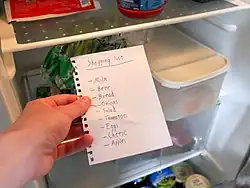 Shopping list:
- Milk
- Beer
- Bread
- Onions
- Salad
- Tomatoes
- Eggs
- Cheese
- Apples